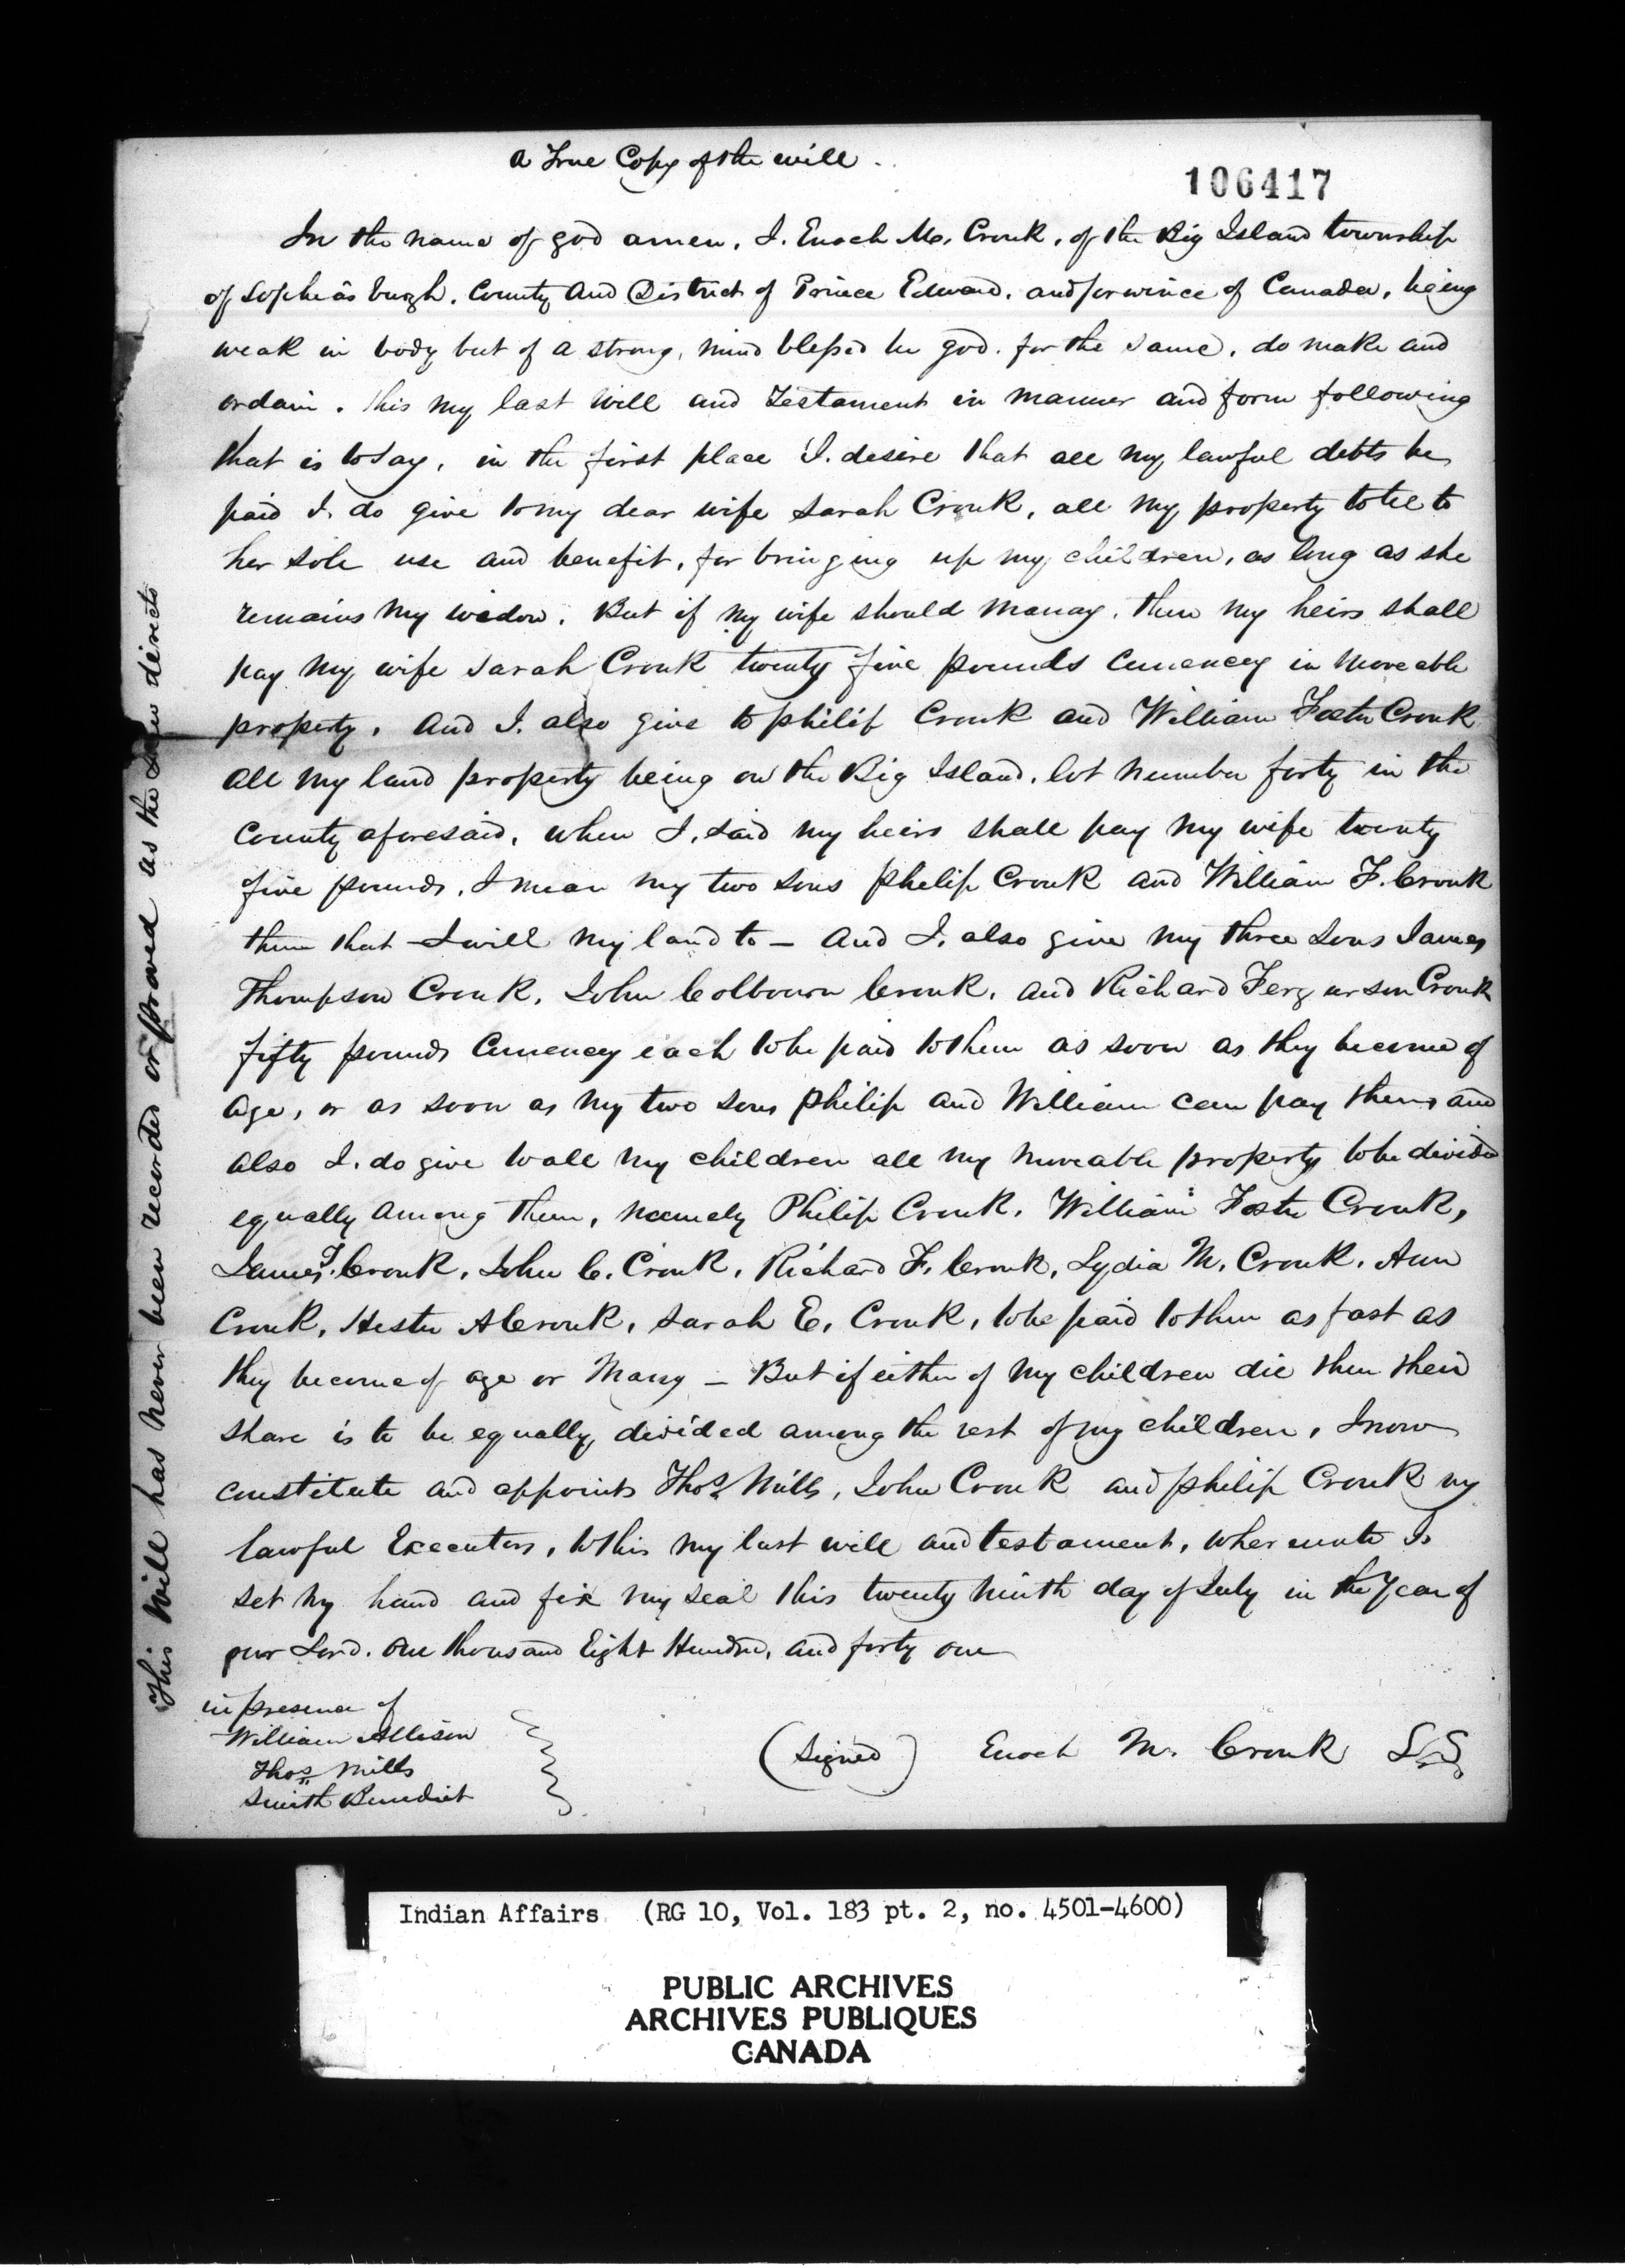 a True Copy of the will.
106417
In the name of god amen, I. Enoch M. Cronk, of the Big Island township
of Sophiasburgh, County and District of Prince Edward, and provinice of Canada, being
weak in body but of a strong, mind blessed be god. for the same, do make and
ordain. this my last will and Testament in manner and form following
that is to say, in the first place I. desire that all my lawful debts be
paid I. do give to my dear wife Sarah Cronk, all my property to
her sole use and benefit, for bringing up my children, as long as she
remains my widow. But if my wife should marray, then my heirs shall
pay my wife Sarah Cronk twenty five pounds Currencey in moveable
property, And I. also give to philip Cronk and William Foster Cronk
all my land property being on the Big Island, lot number forty in the
County aforesaid, when I, said my heirs shall pay my wife twenty
five pounds, I mean my two sons philip Cronk and William F. Cronk
them that I will my land to - and I, also give my three sons James
Thompson Cronk, John Colbourn Cronk, and Richard Fergurson Cronk
fifty pounds Currencey each to be paid to them as soon as they become of
age, or as soon as my two sons philip and William can pay them, and
also I. do give to all my children all my moveable property to be divided
equally among them, namely Philip Cronk, William Foster Cronk,
James T. Cronk, John C. Cronk, Richard F. Cronk, Lydia M. Cronk, Ann
Cronk, Hester A Cronk, Sarah E, Cronk, to be paid to them as fast as
they become of age or Marry - But if either of my children die then their
share is to be equally, divided among the rest of my children, I now
constitute and appoint Thos. Mills, John Cronk and philip Cronk my
lawful Executors, to this my last will and testament, whereunto I.
set my hand and fix my seal this twenty ninth day of July in the Year of
our Lord. One thousand Eight Hundred, and forty one
in presence of
William Allison
Thos Mills
Smith Benedict
(Signed) Enoch M. Cronk L.S
This Will has never been recorded or proved as the Law directs
Indian Affairs. (RG 10, Vol. 183 pt. 2, no. 4501-4600)
PUBLIC ARCHIVES
ARCHIVES PUBLIQUES
CANADA